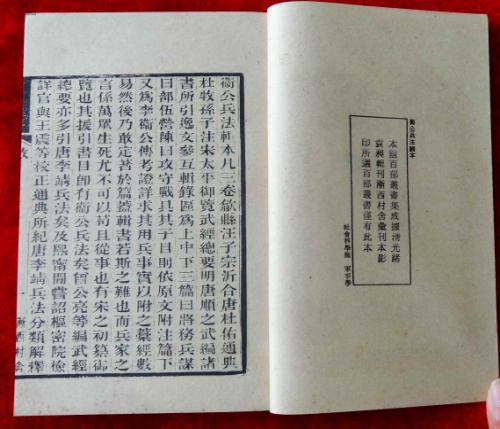 衞公兵法輯本
本館百部叢書集成據淸光緒
袁昶輯刊漸西村舍彙刊本影
印所選百部叢書僅有此本
社會科學類　軍事學
衞公兵法輯本凡三卷歙縣汪子宗沂合唐杜佑通典
杜牧孫子注宋太平御覽武經總要明唐順之武編諸
書所引逸文參互輯錄區爲上中下三篇曰將務兵謀
曰部伍營陳曰攻守戰具其子目則依原文附注篇下
又爲李衞公傳考證詳求其用兵事實以附之藁經數
易然後乃敢定著於篇蓋輯書若斯之難也而兵家之
言係萬眾生死尤不可以苟且從事也有宋之初纂御
覽也其援引書目卽有衞公兵法矣曾公亮等編武經
總要亦多引唐李靖兵法矣及熙甯閒嘗詔樞密院檢
詳官與王震等校正通典所紀唐李靖兵法分類解釋
漸西村舍